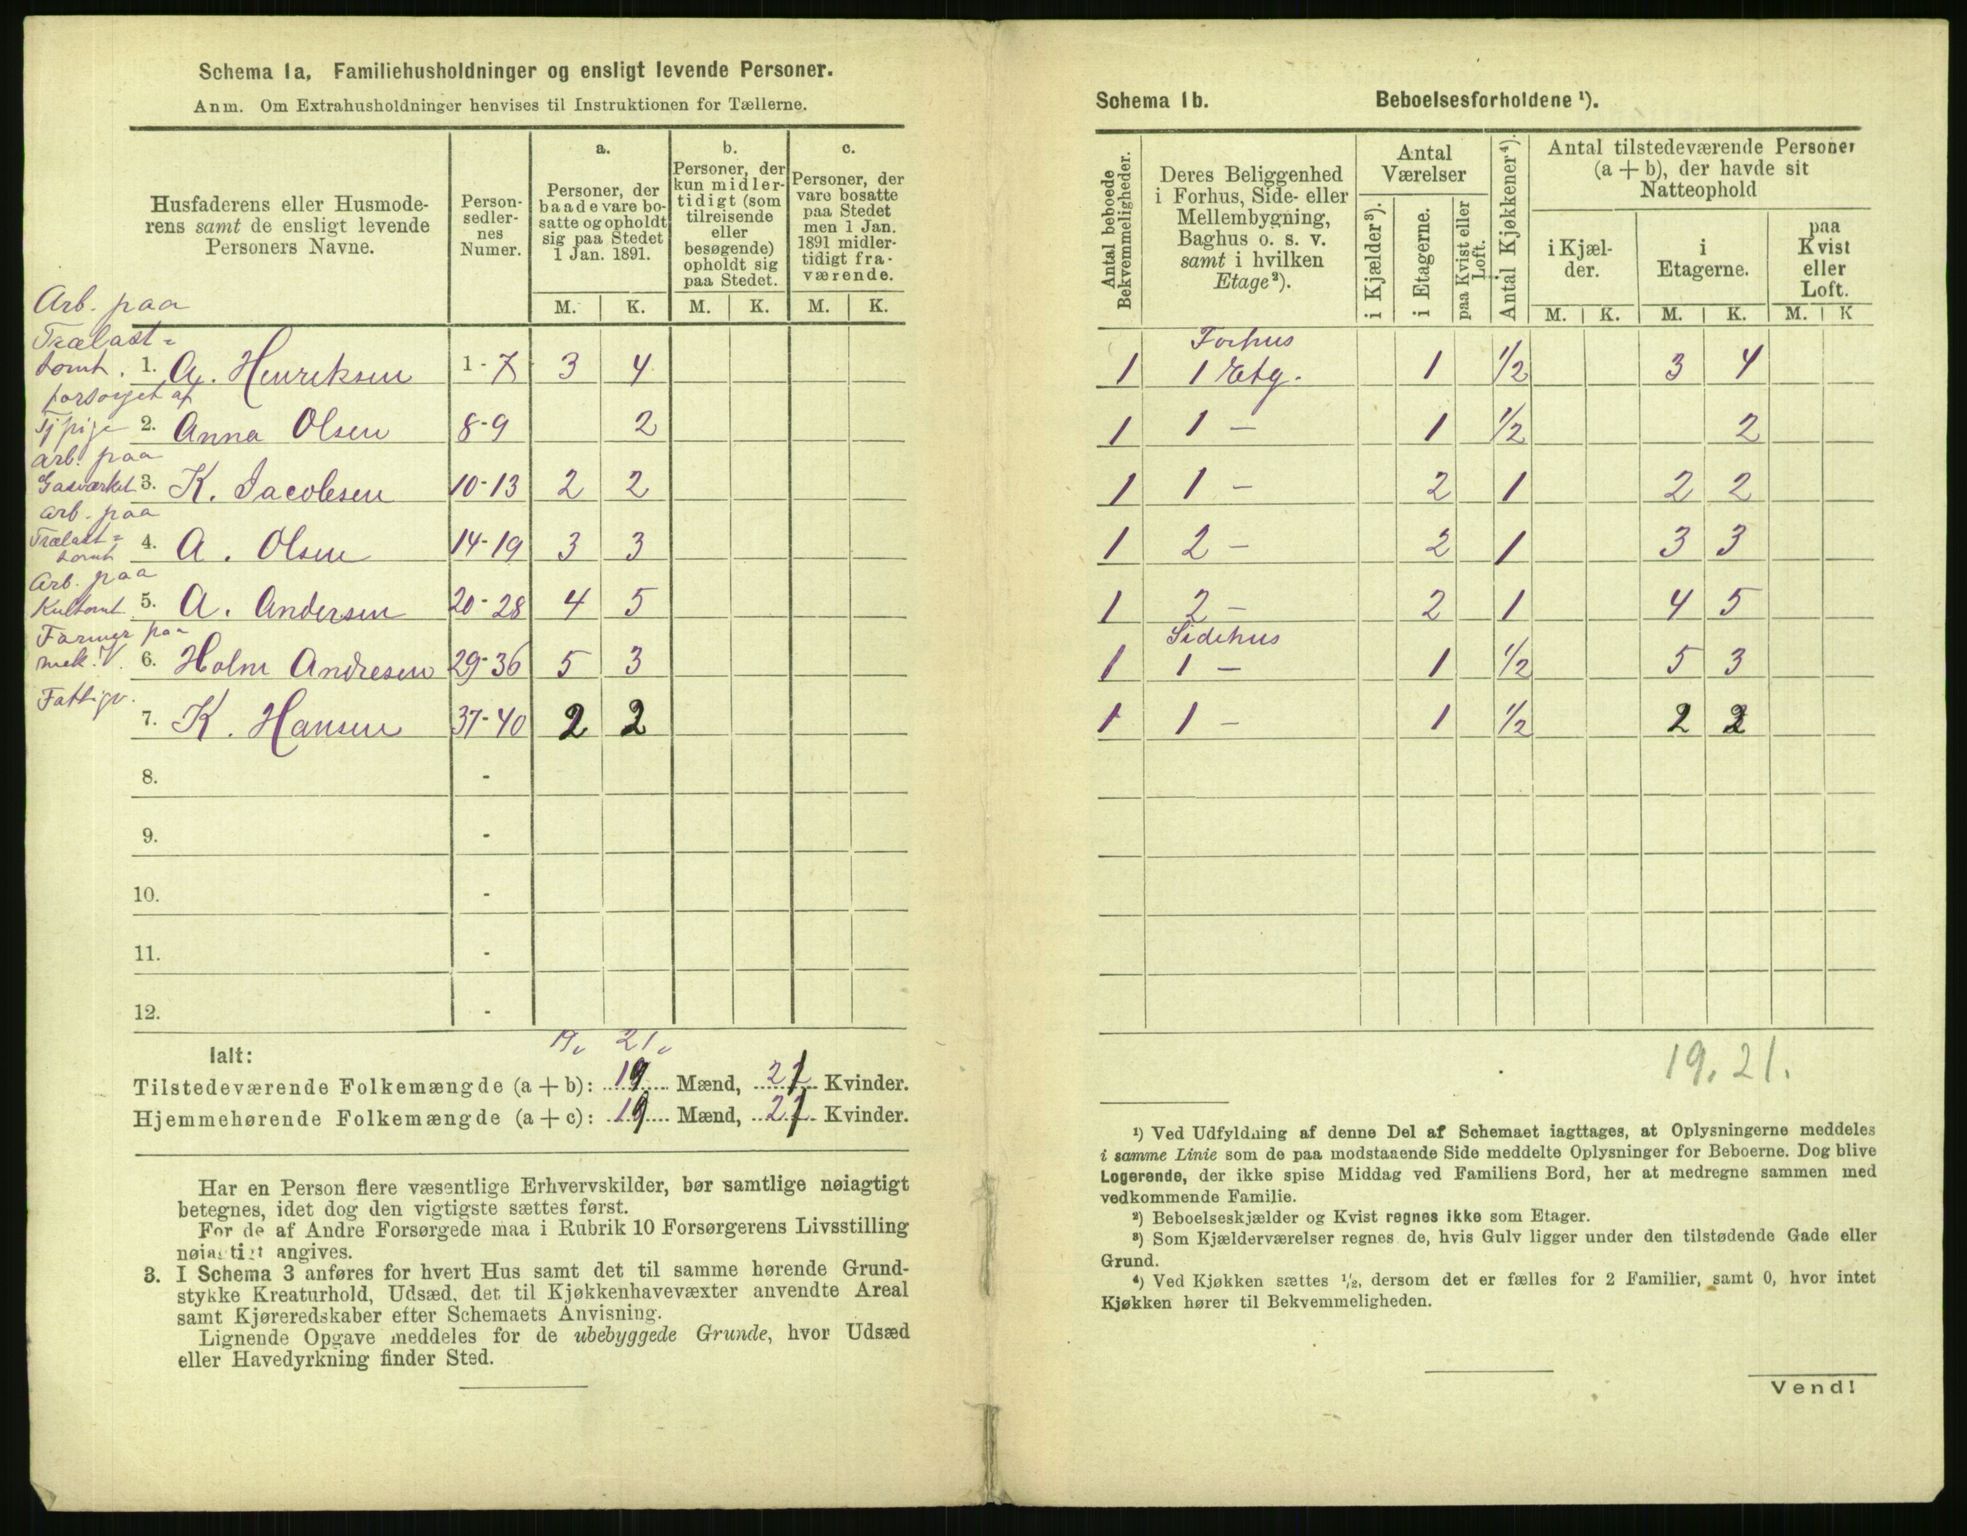 Schema 1a. Familiehusholdninger og ensligt levende Personer.
Anm. Om Extrahusholdninger henvises til Instruktionen for Tællerne.
Husfaderens eller Husmoderens samt de ensligt levende Personers Navne.
Personsedlernes Numer.
a.
Personer, der baade vare bosatte og opholdt sig paa Stedet 1 Jan. 1891.
b.
Personer, der kun midlertidigt (som tilreisende eller besøgende) opholdt sig paa Stedet.
c.
Personer, der vare bosatte paa Stedet men 1 Jan. 1891 midlertidigt fraværende.
M. K. M. K. M. K.
Arb. paa
Trælast=
tomt. 1. A. Henriksen 1-7 3 4
forsørget af
Tj pige 2. Anna Olsen 8-9 2
Arb. paa
Gasværket 3. K. Jacobsen 10-13 2 2
Arb. paa
Trælast=
tomt 4. A. Olsen 14-19 3 3
Arb. paa
Kultomt 5. A. Andersen 20-28 4 5
Former paa
mek. V. 6. Holm Andresen 29-36 5 3
Fattigv.
7. K. Hansen 37-40 2 2
8. -
9. -
10. -
11. -
12. -
19. 21.
Ialt:
Tilstedeværende Folkemængde (a + b): 19 Mænd, 21 Kvinder.
Hjemmehørende Folkemængde (a + c): 19 Mænd, 21 Kvinder.
Har en Person flere væsentlige Erhvervskilder, bør samtlige nøiagtigt
betegnes, idet dog den vigtigste sættes først.
For de af Andre Forsørgede maa i Rubrik 10 Forsørgerens Livsstilling
nøiagtigt angives.
3. I Schema 3 anføres for hvert Hus samt det til samme hørende Grund-
stykke Kreaturhold, Udsæd, det til Kjøkkenhavevæxter anvendte Areal
samt Kjøreredskaber efter Schemaets Anvisning.
Lignende Opgave meddeles for de ubebyggede Grunde, hvor Udsæd
eller Havedyrkning finder Sted.
Schema 1b. Beboelsesforholdene ¹).
Antal beboede Bekvemmeligheder.
Deres Beliggenhed i Forhus, Side- eller Mellembygning, Baghus o. s. v. samt i hvilken Etage²).
Antal Værelser
i Kjælder³).
i Etagerne.
paa Kvist eller Loft.
Antal Kjøkkener⁴).
Antal tilstedeværende Personer (a + b), der havde sit Natteophold
i Kjælder.
i Etagerne.
paa Kvist eller Loft.
M. K. M. K. M. K
Forhus
1 1 Etg. 1 1/2 3 4
1 1 – 1 1/2 2
1 1 – 2 1 2 2
1 2 – 2 1 3 3
1 2 – 2 1 4 5
Sidehus
1 1 – 1 1/2 5 3
1 1 – 1 1/2 2 2
19. 21.
¹) Ved Udfyldning af denne Del af Schemaet iagttages, at Oplysningerne meddeles
i samme Linie som de paa modstaaende Side meddelte Oplysninger for Beboerne. Dog blive
Logerende, der ikke spise Middag ved Familiens Bord, her at medregne sammen med
vedkommende Familie.
²) Beboelseskjælder og Kvist regnes ikke som Etager.
³) Som Kjælderværelser regnes de, hvis Gulv ligger under den tilstødende Gade eller
Grund.
⁴) Ved Kjøkken sættes 1/2, dersom det er fælles for 2 Familier, samt 0, hvor intet
Kjøkken hører til Bekvemmeligheden.
Vend!